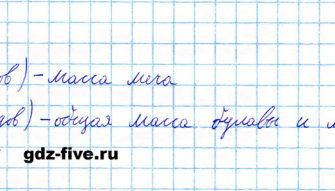 ов) - масса меча
дов) - общая масса булавы и м
gdz-five.ru